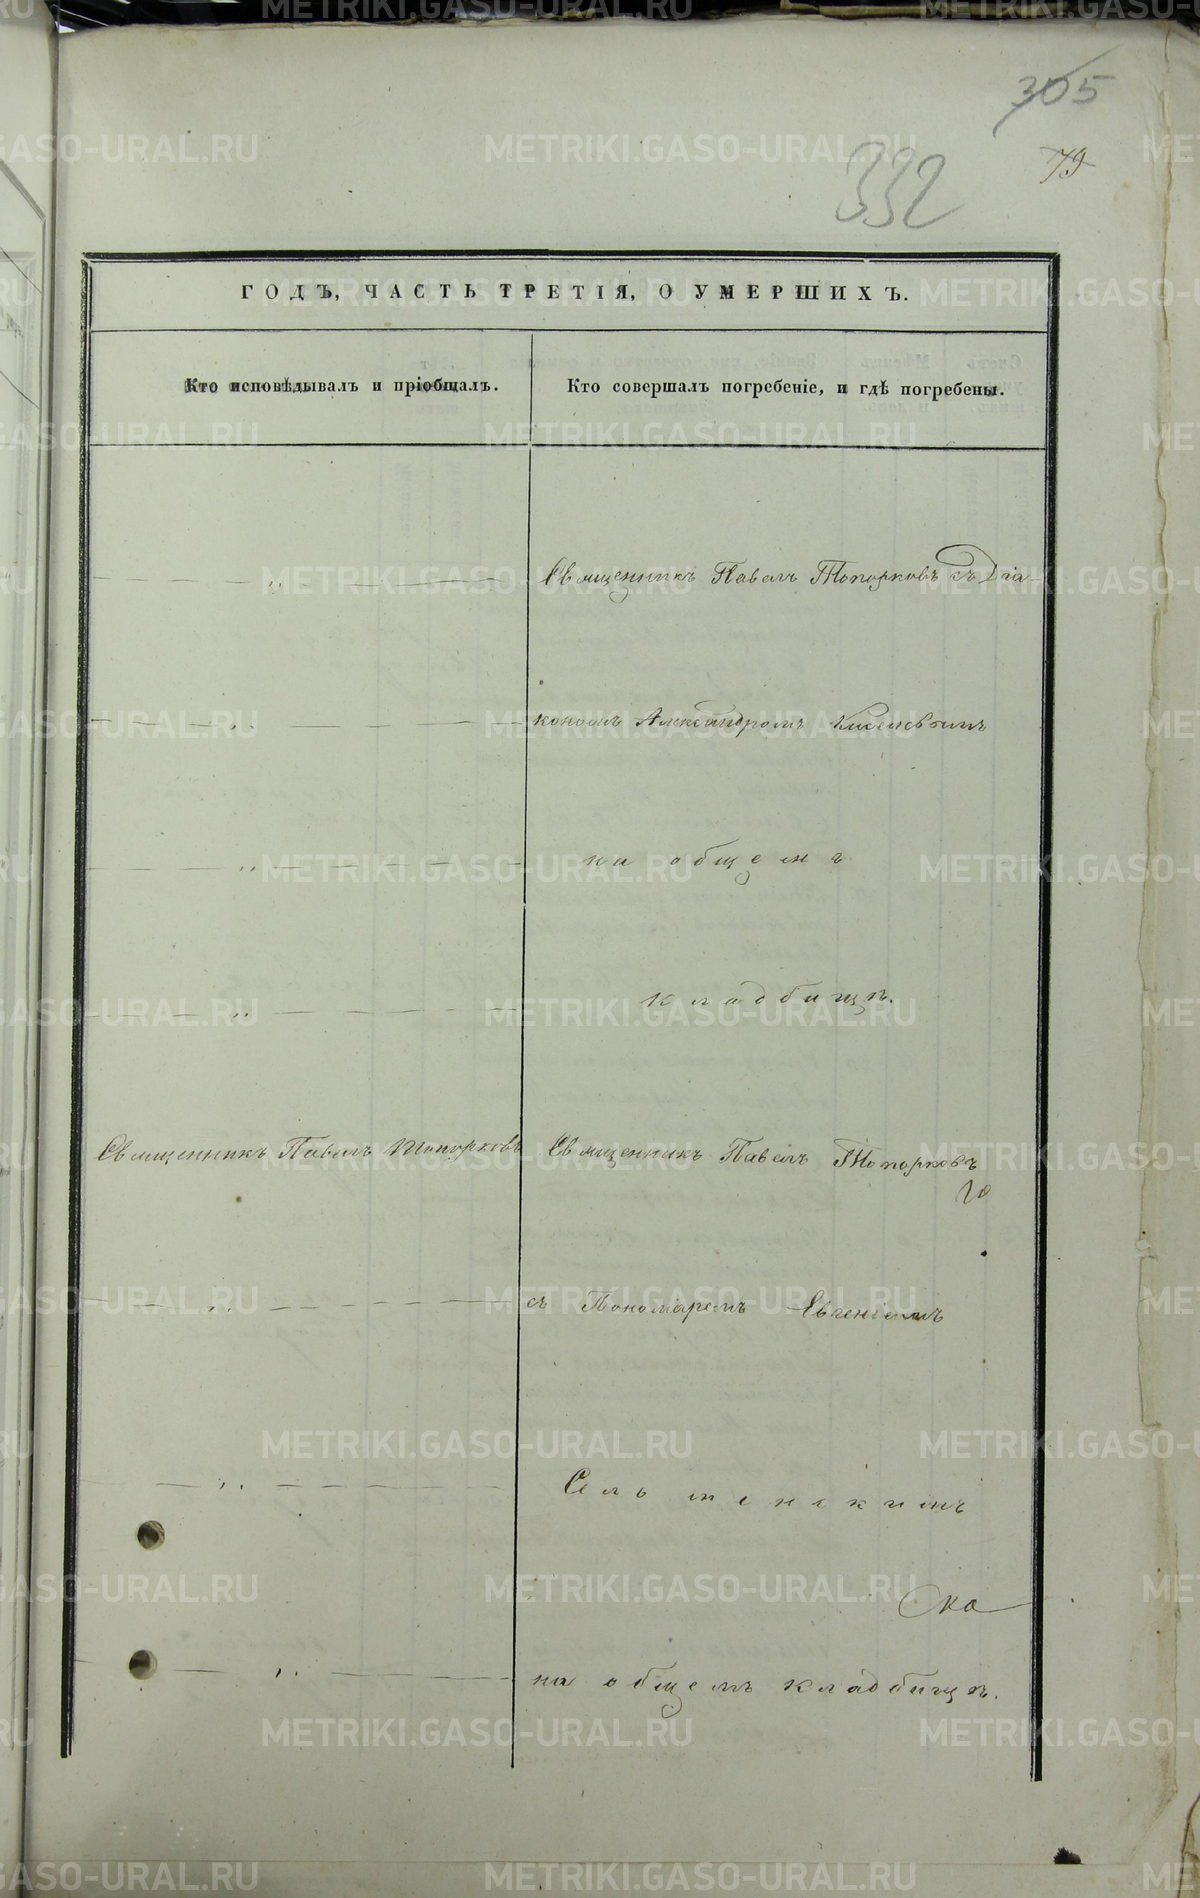 305
79
332
ГОДЪ, ЧАСТЬ ТРЕТІЯ, О УМЕРШИХЪ.
Кто исповѣдывалъ и пріобщалъ.
Кто совершалъ погребеніе, и гдѣ погребены.
Священникъ Павелъ Топорковъ съ Діа-
кономъ Александромъ Киселевымъ
на общемъ
кладбищѣ.
Священникъ Павелъ Топорковъ
Священникъ Павелъ Топорковъ
съ Пономаремъ Евгеніемъ
Сельменскимъ
на общемъ кладбищѣ.
METRIKI.GASO-URAL.RU